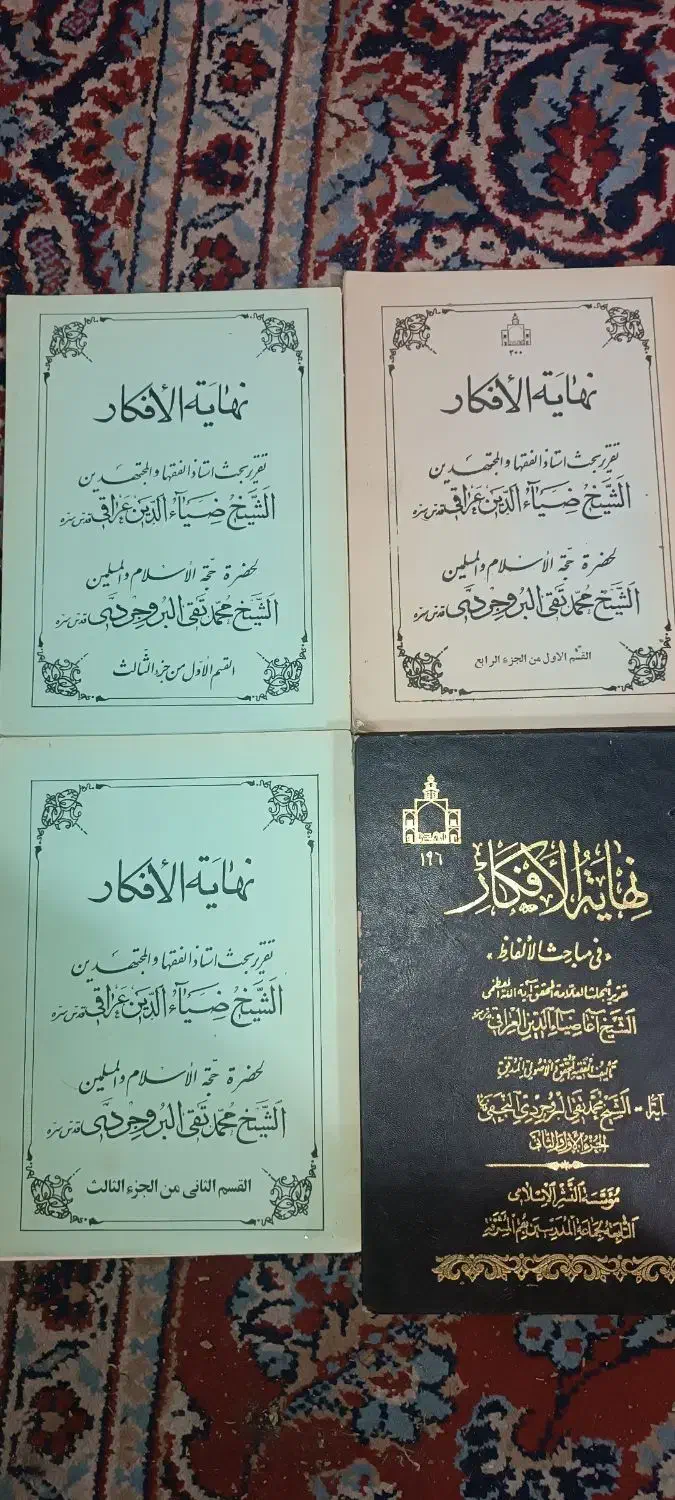 نهایة الأفکار
تقریر بحث استاذ الفقهاء والمجتهدین
الشَّیخُ ضیَاءُ الدّین عَراقی قدس سره
لحضرة حجّة الاسلام والمسلمین
الشَّیخ محمّد تَقی البروجردی قدس سره
القسم الاوّل من جزء الثّالث
۳۰۰
نهایة الأفکار
تقریر بحث استاذ الفقهاء والمجتهدین
الشَّیخُ ضیَاءُ الدّین عَراقی قدس سره
لحضرة حجّة الاسلام والمسلمین
الشَّیخ محمّد تَقی البروجردی قدس سره
القسم الاول من الجزء الرابع
نهایة الأفکار
تقریر بحث استاذ الفقهاء والمجتهدین
الشَّیخُ ضیَاءُ الدّین عَراقی قدس سره
لحضرة حجّة الاسلام والمسلمین
الشَّیخ محمّد تَقی البروجردی قدس سره
القسم الثانی من الجزء الثالث
۱۹٦
نِهایَةُ الأَفکار
«فی مباحث الألفاظ»
العلامة المحقق آیة الله العظمی
الشیخ آغا ضیاء الدین العراقی
تألیف الفقیه المحقق والأصولی المدقق
الشیخ محمد تقی البروجردی النجفی
الجزء الاول والثانی
مؤسسة النشر الإسلامی
التابعة لجماعة المدرسین بقم المشرفة